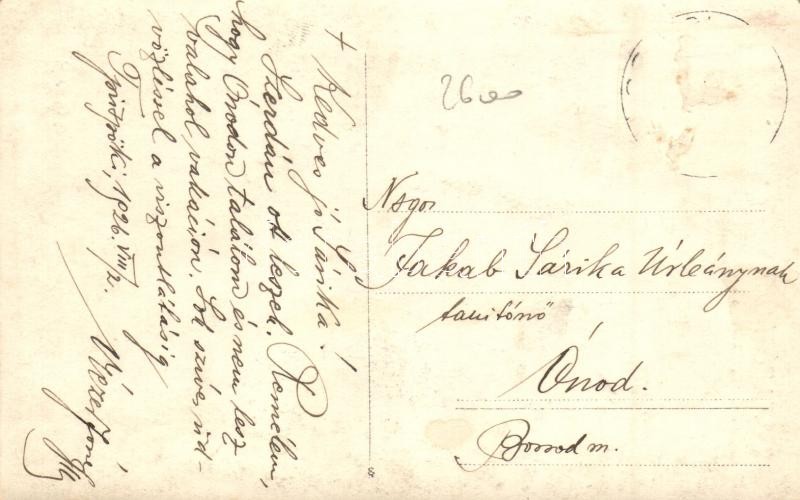 + Kedves jó Sárika!
Szerdán ott leszek. Remélem,
hogy Ónodon találom és nem lesz
valahol vakáción. Sok szíves üd-
vözléssel a viszontlátásig
1926. VIII/2.
26
Nsgos
Jakab Sárika Úrleánynak
tanítónő
Ónod.
Borsod m.